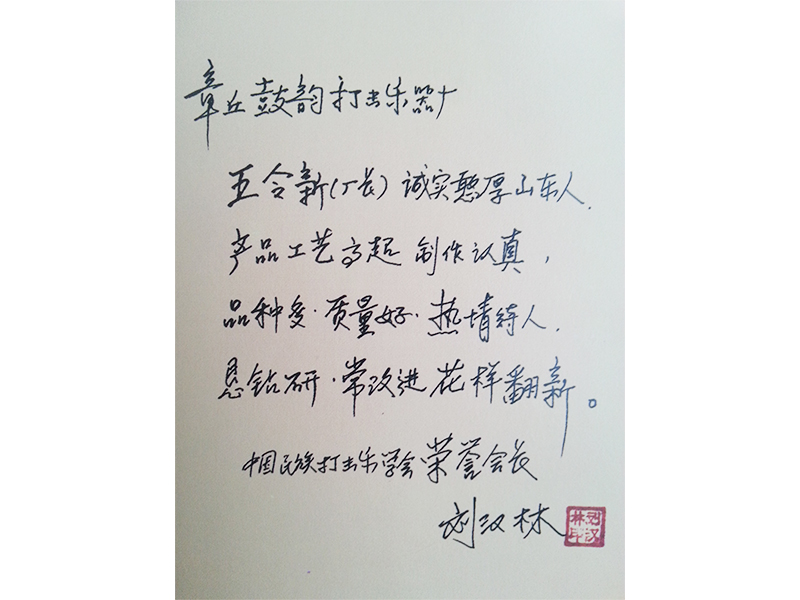 章丘鼓韵打击乐器厂
王令新(厂长)诚实憨厚山东人.
产品工艺高超 制作认真,
品种多·质量好·热情待人.
恳钻研·常改进 花样翻新。
中国民族打击乐学会荣誉会长
刘汉林
刘汉林印